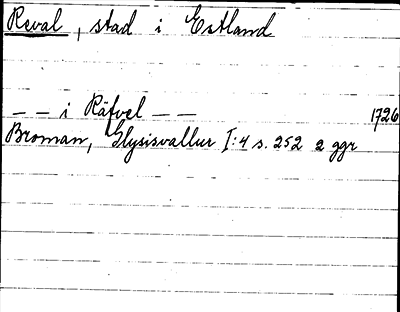 Reval, stad i Estland
— — i Räfvel — — 1726
Broman, Glysisvallur I:4 s. 252 2 ggr